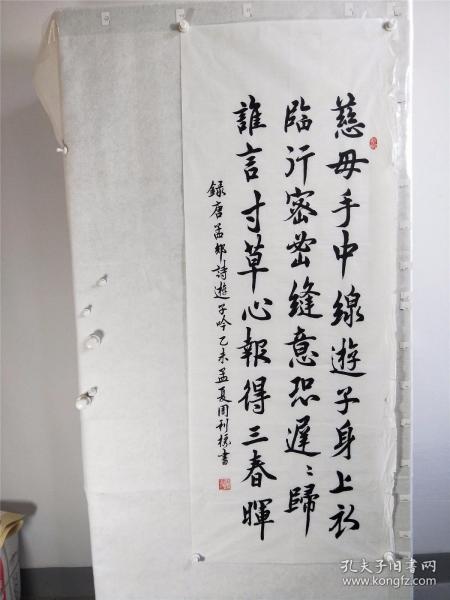 慈母手中線遊子身上衣
臨行密密縫意恐遲〻歸
誰言寸草心報得三春暉
録唐孟郊詩遊子吟乙未孟夏周刊榜書
孔夫子旧书网
www.kongfz.com